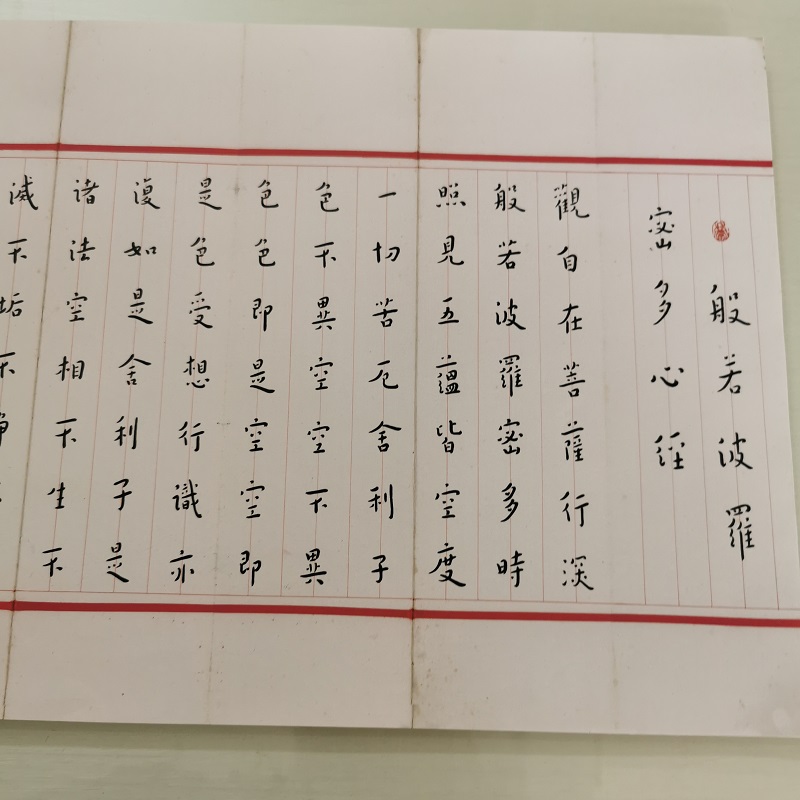 般若波羅
密多心經
觀自在菩薩行深
般若波羅密多時
照見五蘊皆空度
一切苦厄舍利子
色不異空空不異
色色即是空空即
是色受想行識亦
復如是舍利子是
諸法空相不生不
滅不垢不淨